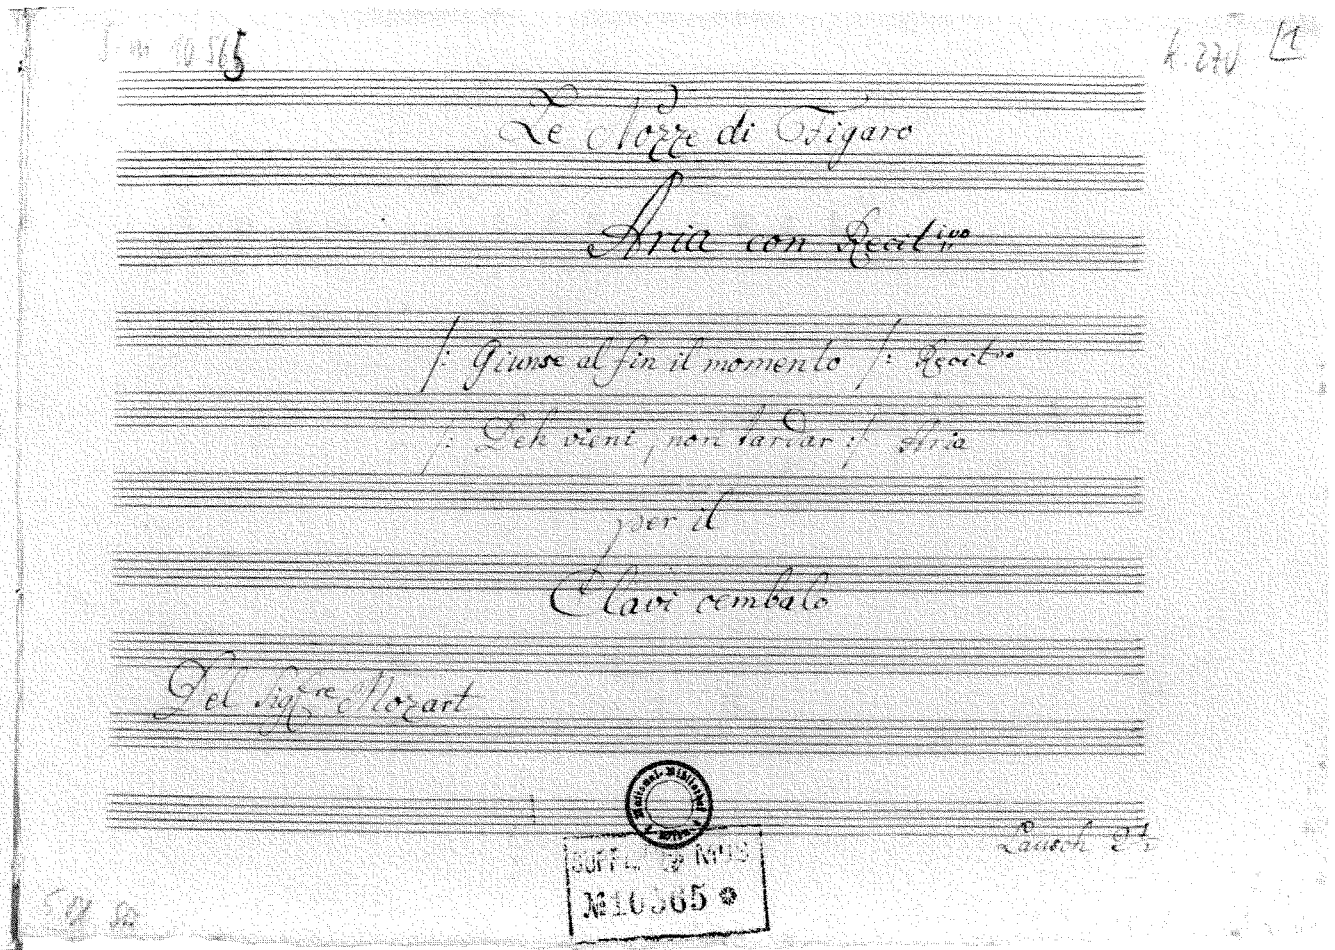 S. m. 10 565
K. 270 1
Le Nozze di Figaro
Aria con Recit:ivo
/: Giunse al fin il momento /: Recit:vo
/: Deh vieni, non tardar :/ Aria
per il
Clavi cembalo
Del Sigre Mozart
National-Bibliothek
Lausch
SUPPL. MUS
№10565